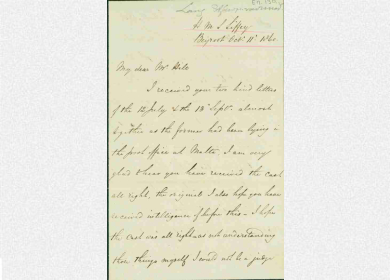 H. M. S. Liffey
Beyrout Oct. 11th 1860
My dear Mr Hele
I received your two kind letters
of the 12 July & the 13th Sept. almost
together as the former had been lying in
the post office at Malta, I am very
glad to hear you have received the cast
all right, the original I also hope you have
received intelligence of before this - I hope
the cast was all right as not understanding
these things myself I could not be a judge